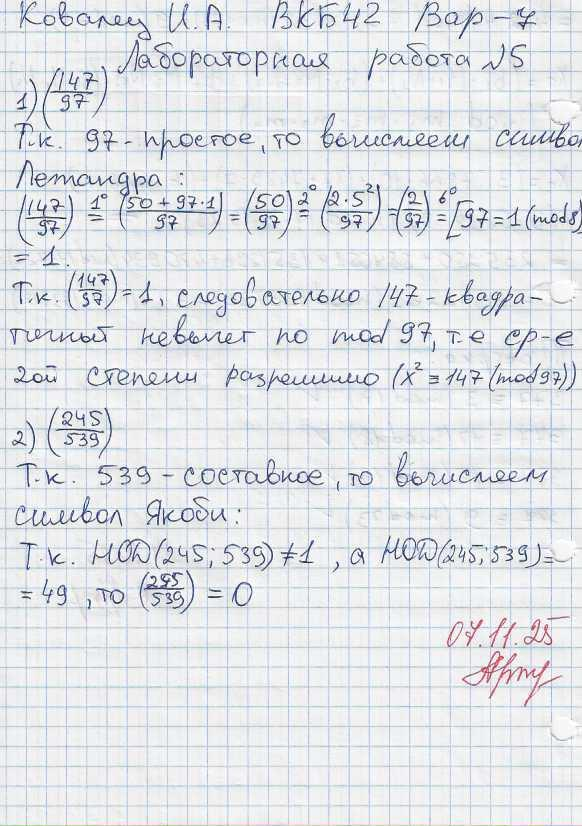 Ковалец И.А. ВКБ42 Вар-7
Лабораторная работа №5
1) (147/97)
Т.к. 97-простое, то вычисляем символ
Лежандра:
(147/97) 1°= (50+97·1/97) = (50/97) 2°= (2·5²/97) = (2/97) 6°= [97=1(mod8)
= 1.
Т.к. (147/97)=1, следовательно 147-квадра-
тичный невычет по mod 97, т.е ср-е
2ой степени разрешимо (x²≡147(mod97))
2) (245/539)
Т.к. 539-составное, то вычисляем
символ Якоби:
Т.к. НОД(245;539)≠1, а НОД(245;539)=
=49, то (245/539) = 0
07.11.25